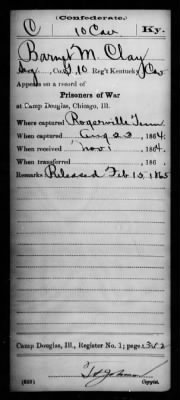 (Confederate.)
C 10 Cav Ky.
M. Clay
Co. 10 Reg't Kentucky Cav
Appears on a record of
Prisoners of War
at Camp Douglas, Chicago, Ill.
Where captured Rogerville Tenn
When captured Aug 23, 1864.
When received Nov 1, 1864.
When transferred , 186 .
Remarks Released Feb 13, 1865
Camp Douglas, Ill., Register No. 1; page 342
Copyist.